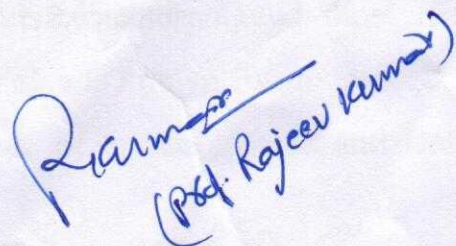 RKumar
(Prof. Rajeev Kumar)